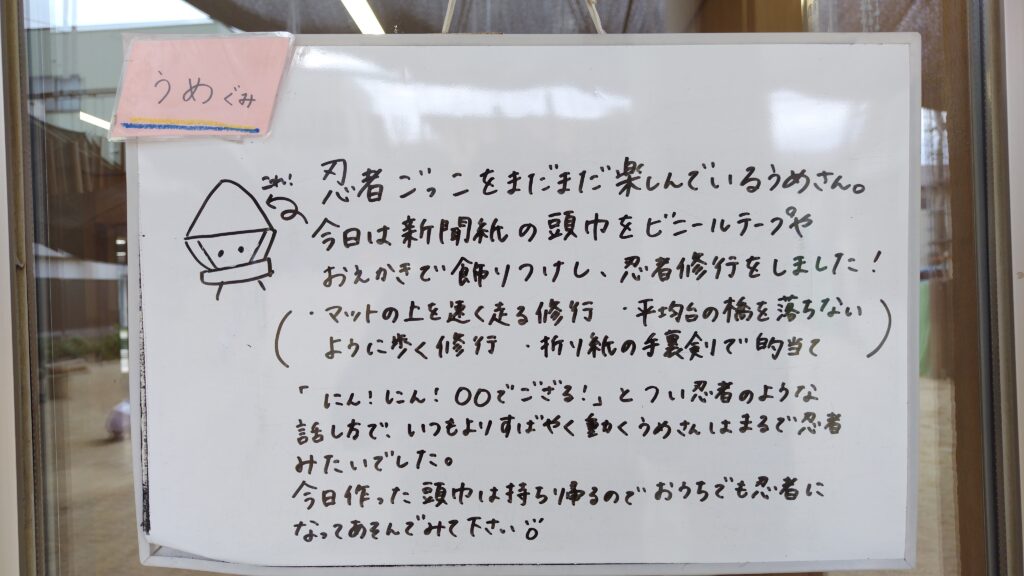 うめぐみ
これ!
忍者ごっこをまだまだ楽しんでいるうめさん。
今日は新聞紙の頭巾をビニールテープや
おえかきで飾りつけし、忍者修行をしました!
(・マットの上を速く走る修行 ・平均台の橋を落ちない
ように歩く修行 ・折り紙の手裏剣で的当て)
「にん!にん!〇〇でござる!」とつい忍者のような
話し方で、いつもよりすばやく動くうめさんはまるで忍者
みたいでした。
今日作った頭巾は持ち帰るのでおうちでも忍者に
なってあそんでみて下さい